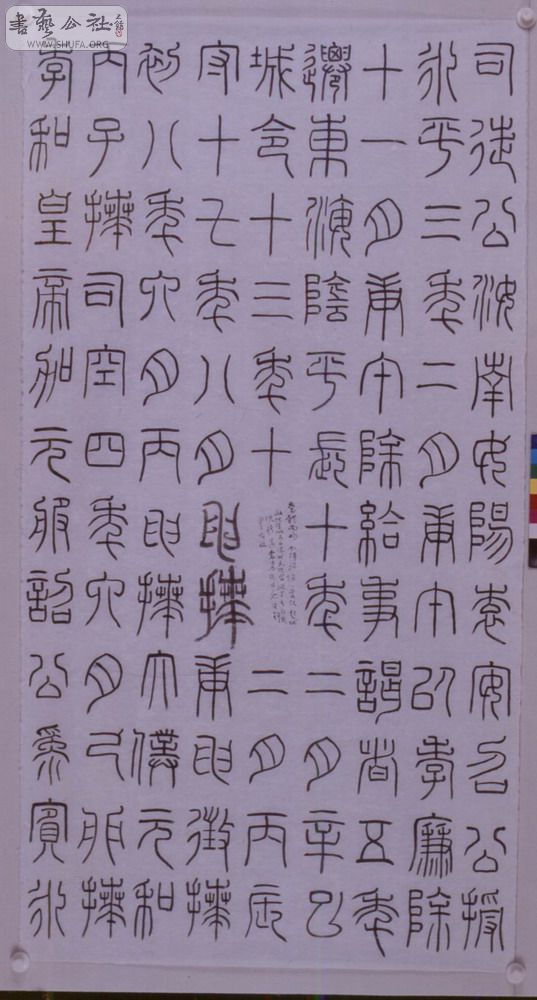 書藝公社
WWW.SHUFA.ORG
司徒公汝南女陽袁安召公授
永平三年二月庚午以孝廉除
十一月庚午除給事謁者五年
遷東海陰平長十年二月辛巳
城令十三年十二月丙辰
守十七年八月庚申徵拜
申拜
初八年六月丙申拜太僕元和
丙子拜司空四年六月己卯拜
孝和皇帝加元服詔公為賓永